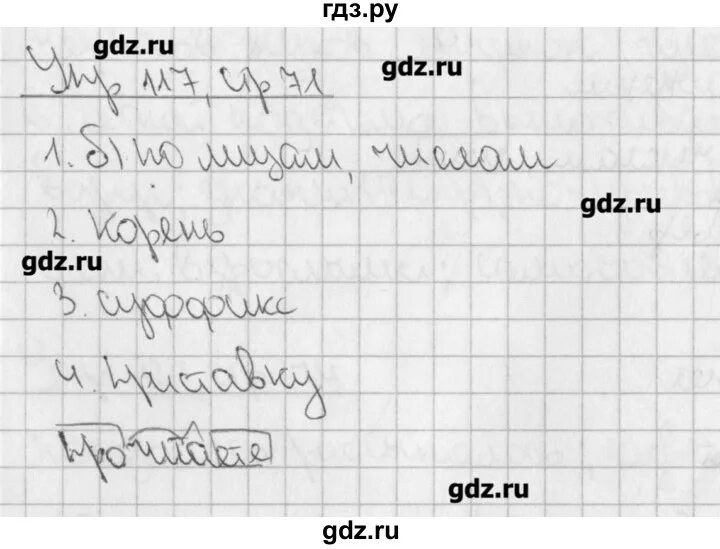 гдз.ру
gdz.ru
Упр 117, стр 71
gdz.ru
1. б) по лицам, числам
gdz.ru
2. Корень
gdz.ru
3. суффикс
4. приставку
прочитаете
gdz.ru
gdz.ru